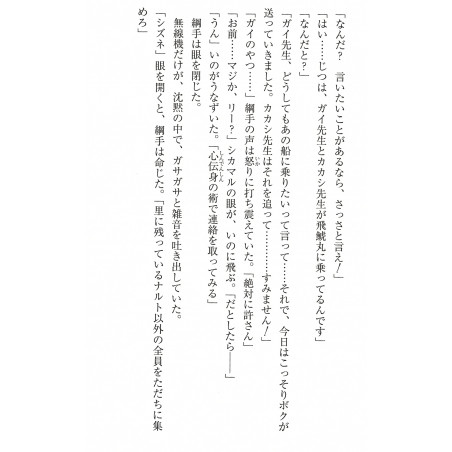 「なんだ？　言いたいことがあるなら、さっさと言え！」
「はい……じつは、ガイ先生とカカシ先生が飛鯱丸に乗ってるんです」
「なんだと？」
「ガイ先生、どうしてもあの船に乗りたいって言って……それで、今日はこっそりボクが
送っていきました。カカシ先生はそれを追って…………すみません！」
「ガイのやつ……」綱手の声は怒りに打ち震えていた。「絶対に許さん」
「お前……マジか、リー？」シカマルの眼が、いのに飛ぶ。「だとしたら――」
「うん」いのがうなずいた。「心伝身の術で連絡を取ってみる」
綱手は眼を閉じた。
無線機だけが、沈黙の中で、ガサガサと雑音を吐き出していた。
「シズネ」眼を開くと、綱手は命じた。「里に残っているナルト以外の全員をただちに集
めろ」